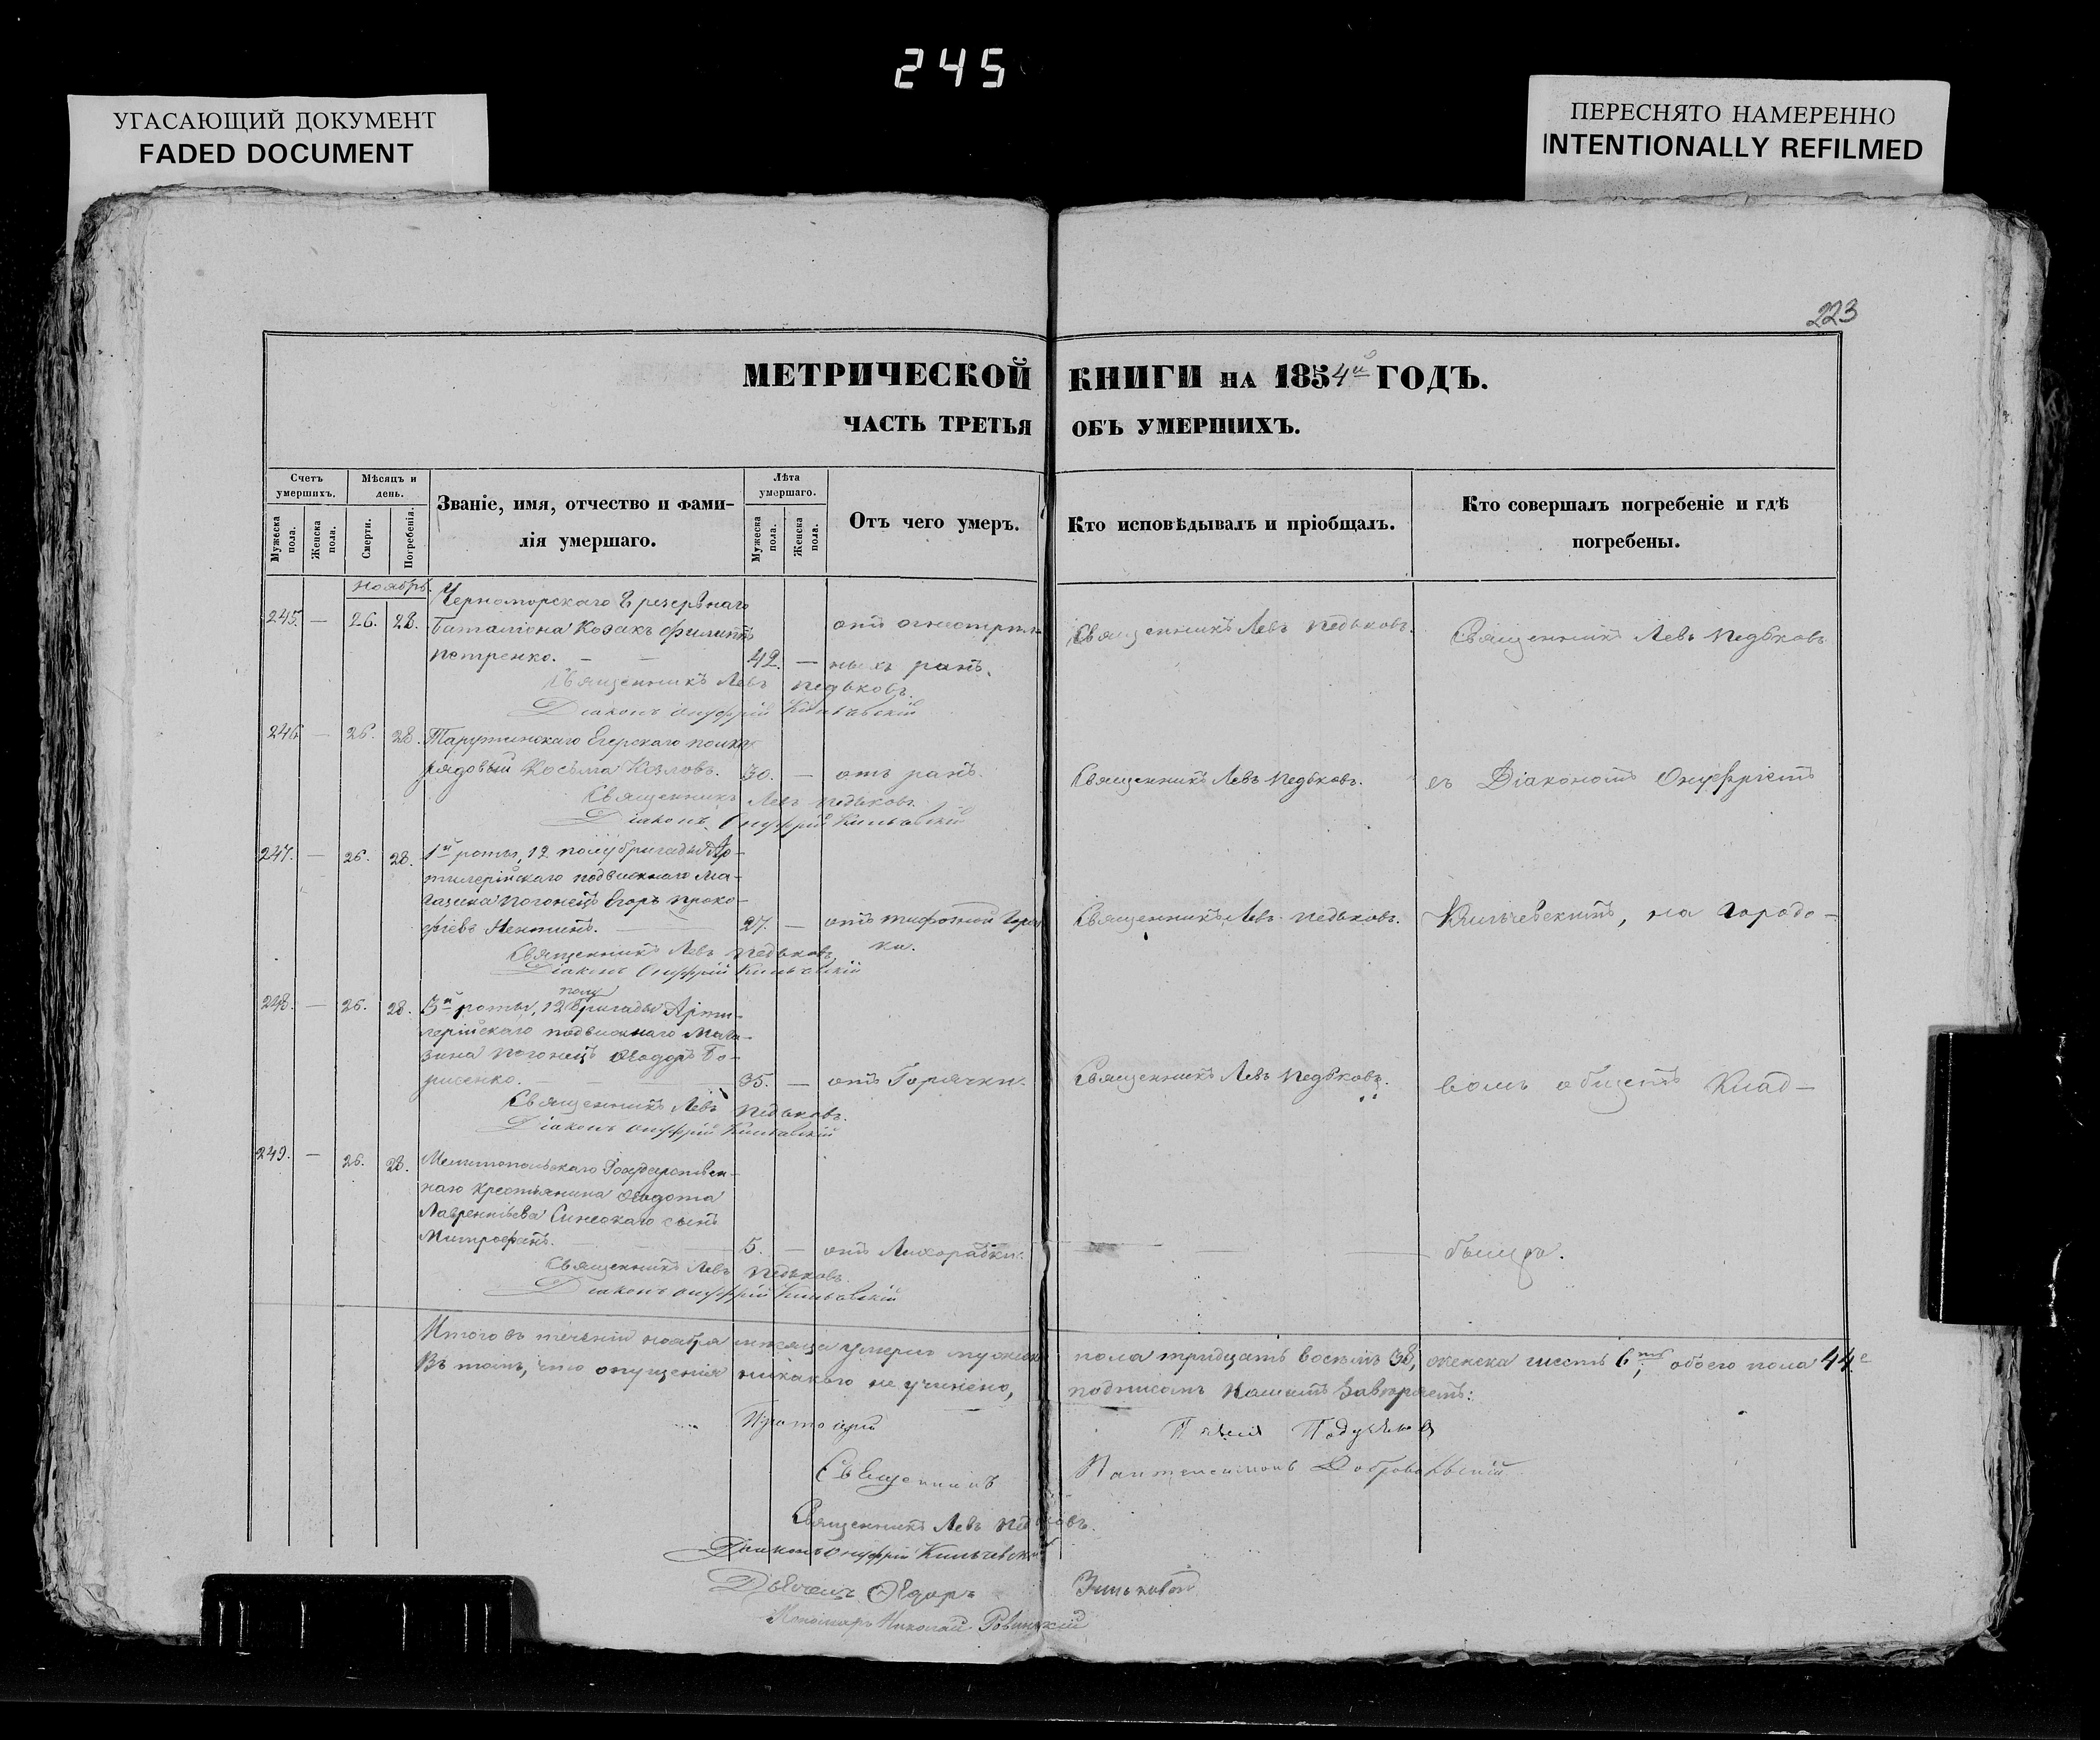 245
УГАСАЮЩИЙ ДОКУМЕНТ
FADED DOCUMENT
ПЕРЕСНЯТО НАМЕРЕННО
INTENTIONALLY REFILMED
223
МЕТРИЧЕСКОЙ КНИГИ НА 1854й ГОДЪ.
ЧАСТЬ ТРЕТЬЯ ОБЪ УМЕРШИХЪ.
Счетъ умершихъ.
Мужеска пола.
Женска пола.
Мѣсяцъ и день.
Смерти.
Погребенія.
Званіе, имя, отчество и фами-
лія умершаго.
Лѣта умершаго.
Мужеска пола.
Женска пола.
Отъ чего умеръ.
Кто исповѣдывалъ и пріобщалъ.
Кто совершалъ погребеніе и гдѣ
погребены.
Ноябрь.
245. — 26. 28. Черноморскаго 8 резервнаго
баталіона Козакъ Филиппъ
Петренко. — — 42. — отъ огнестрѣль
ныхъ ранъ. Священникъ Левъ Педьковъ. Священникъ Левъ Педьковъ
Священникъ Левъ Педьковъ.
Діаконъ Онуфрій Кильчевскій
246 — 26. 28. Тарутинскаго Егерскаго полка
рядовый Косьма Козловъ. 30. — отъ ранъ. Священникъ Левъ Педьковъ. съ Діакономъ Онуфріемъ
Священникъ Левъ Педьковъ.
Діаконъ Онуфрій Кильчевскій
247. — 26. 28. 1й роты, 12 полубригады Ар-
тилерійскаго подвижнаго Ма-
газина погонецъ Егоръ Проко-
фіевъ 27. — отъ тифозной Горяч
ки. Священникъ Левъ Педьковъ. Кильчевскимъ, на Городо-
Священникъ Левъ Педьковъ.
Діаконъ Онуфрій Кильчевскій
248. — 26. 28. 3й роты, 12 полу бригады Арти-
лерійскаго подвижнаго Мага-
зина погонецъ Ѳеодоръ Бо-
рисенко. — — 35. — отъ Горячки. Священникъ Левъ Педьковъ. вомъ общемъ Клад-
Священникъ Левъ Педьковъ.
Діаконъ Онуфрій Кильчевскій
249. — 26. 28. Мелитопольскаго Государствен-
наго крестьянина Ѳеодота
Лаврентьева сынъ
Митрофанъ. — 5. — отъ Лихорадки. — — бищѣ.
Священникъ Левъ Педьковъ.
Діаконъ Онуфрій Кильчевскій
Итого въ теченіи ноября мѣсяца умерло мужеска пола тридцать восемь 38, женска шесть 6ть, обоего пола 44.
Въ томъ, что опущенія никакого не учинено, подписомъ нашимъ завѣряемъ:
Протоіерей
Священникъ Пантелеимонъ Добровольскій
Священникъ Левъ Педьковъ.
Діаконъ Онуфрій Кильчевскій
Дьячекъ Ѳедоръ
Пономарь Николай Ровинскій